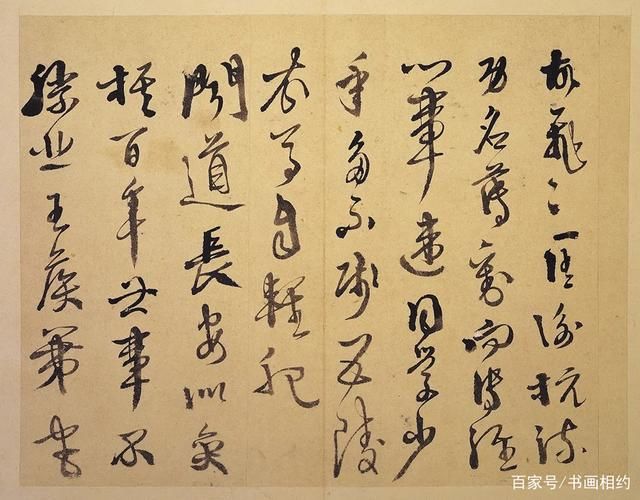 故飛〻匡衡抗疏
功名薄劉向傳經
心事違同學少
年多不賤五陵
衣馬自輕肥
聞道長安似奕
棋百年世事不
勝悲王侯第宅
百家号/书画相约